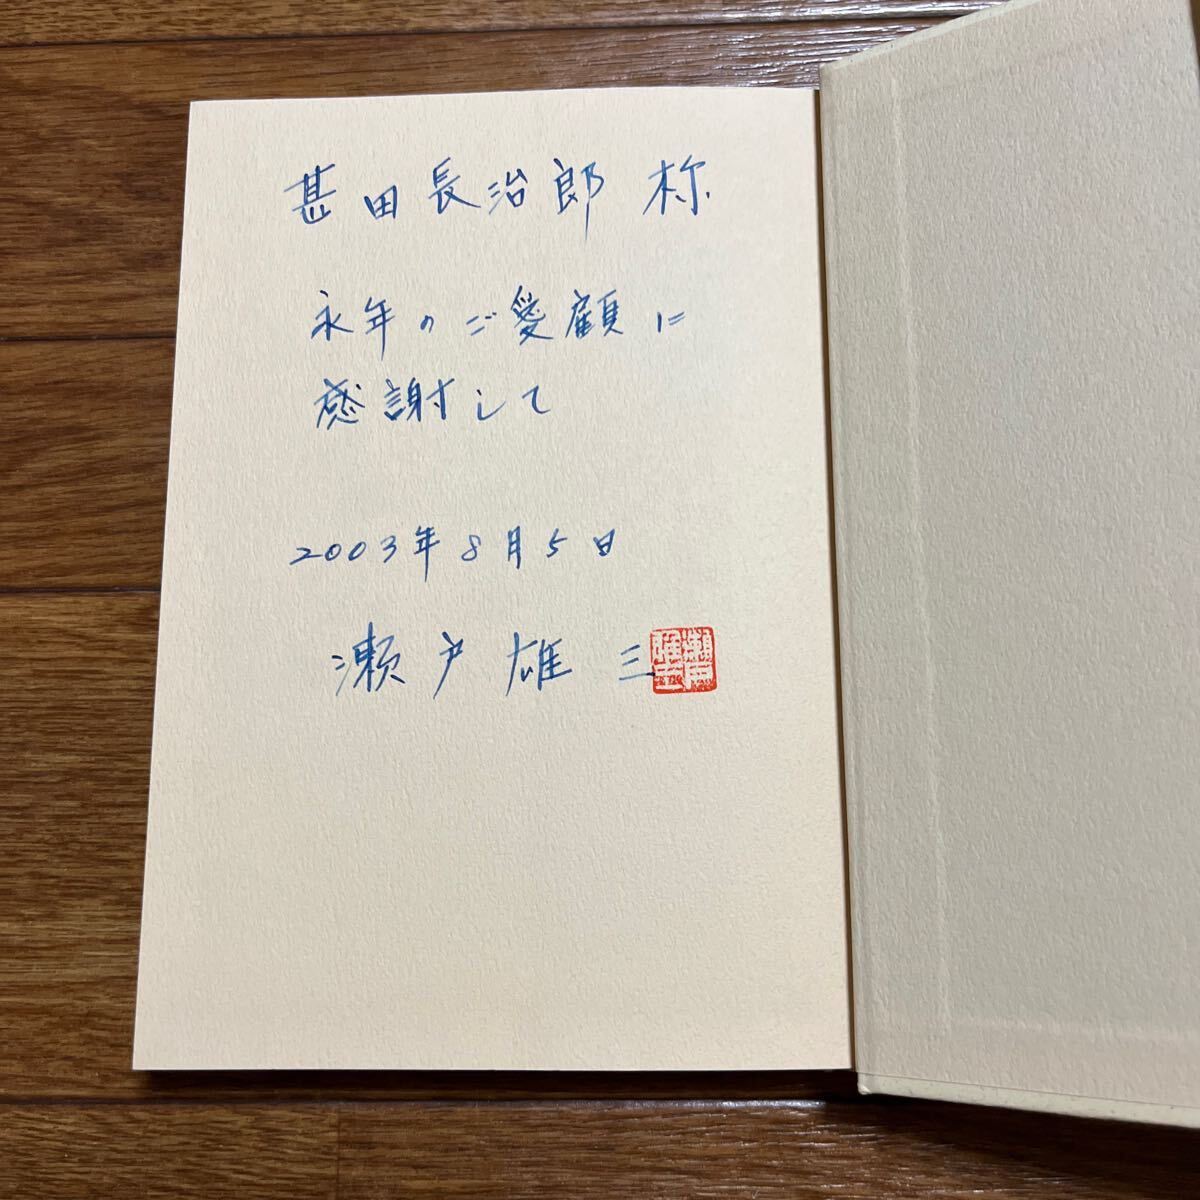 甚田長治郎 様
永年のご愛顧に
感謝して
2003年8月5日
瀬戸雄三
瀬戸
雄三